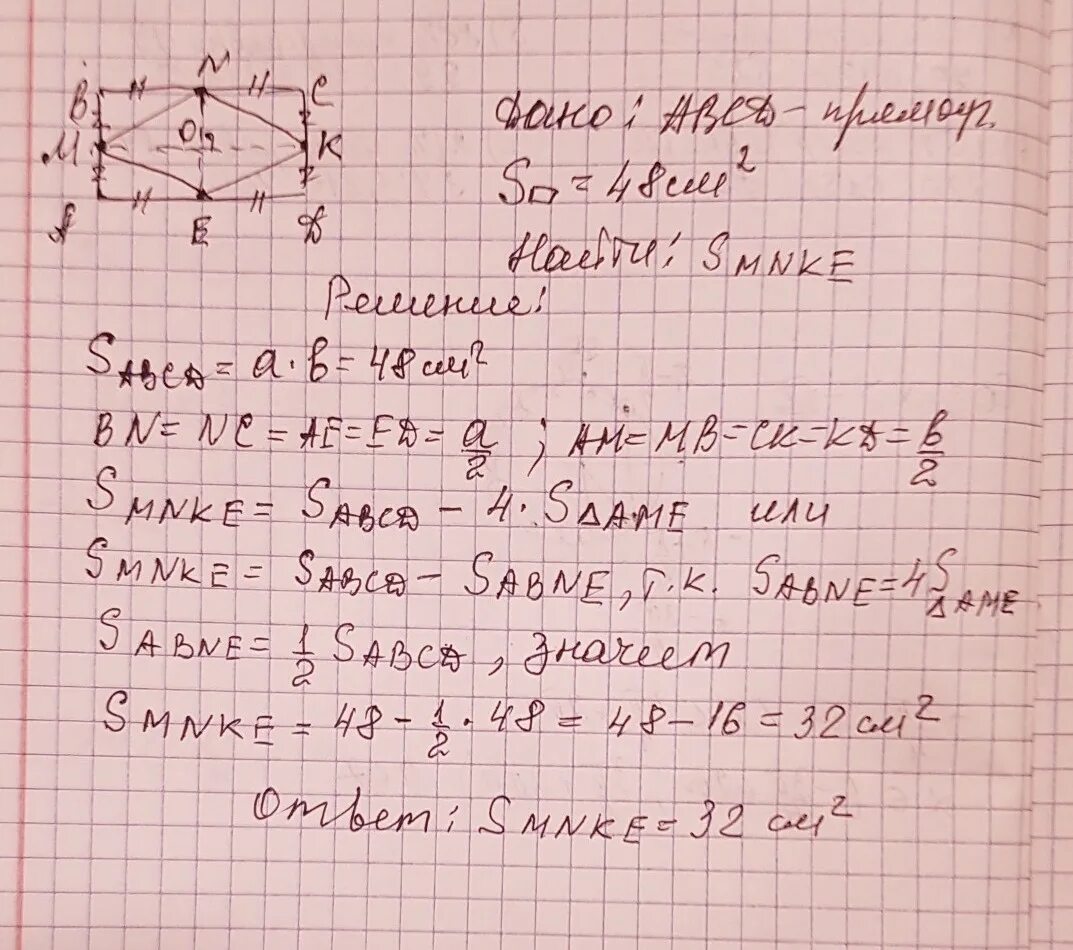 N
B C
O
M K
A E D
Дано: ABCD - прямоуг.
S▭ = 48 см²
Найти: S MNKE
Решение:
S ABCD = a · b = 48 см²
BN = NC = AE = ED = a/2 ; AM = MB = CK = KD = b/2
S MNKE = S ABCD - 4 · S ΔAME или
S MNKE = S ABCD - S ABNE, т.к. S ABNE = 4 S ΔAME
S ABNE = 1/2 S ABCD, значит
S MNKE = 48 - 1/2 · 48 = 48 - 16 = 32 см²
Ответ: S MNKE = 32 см²